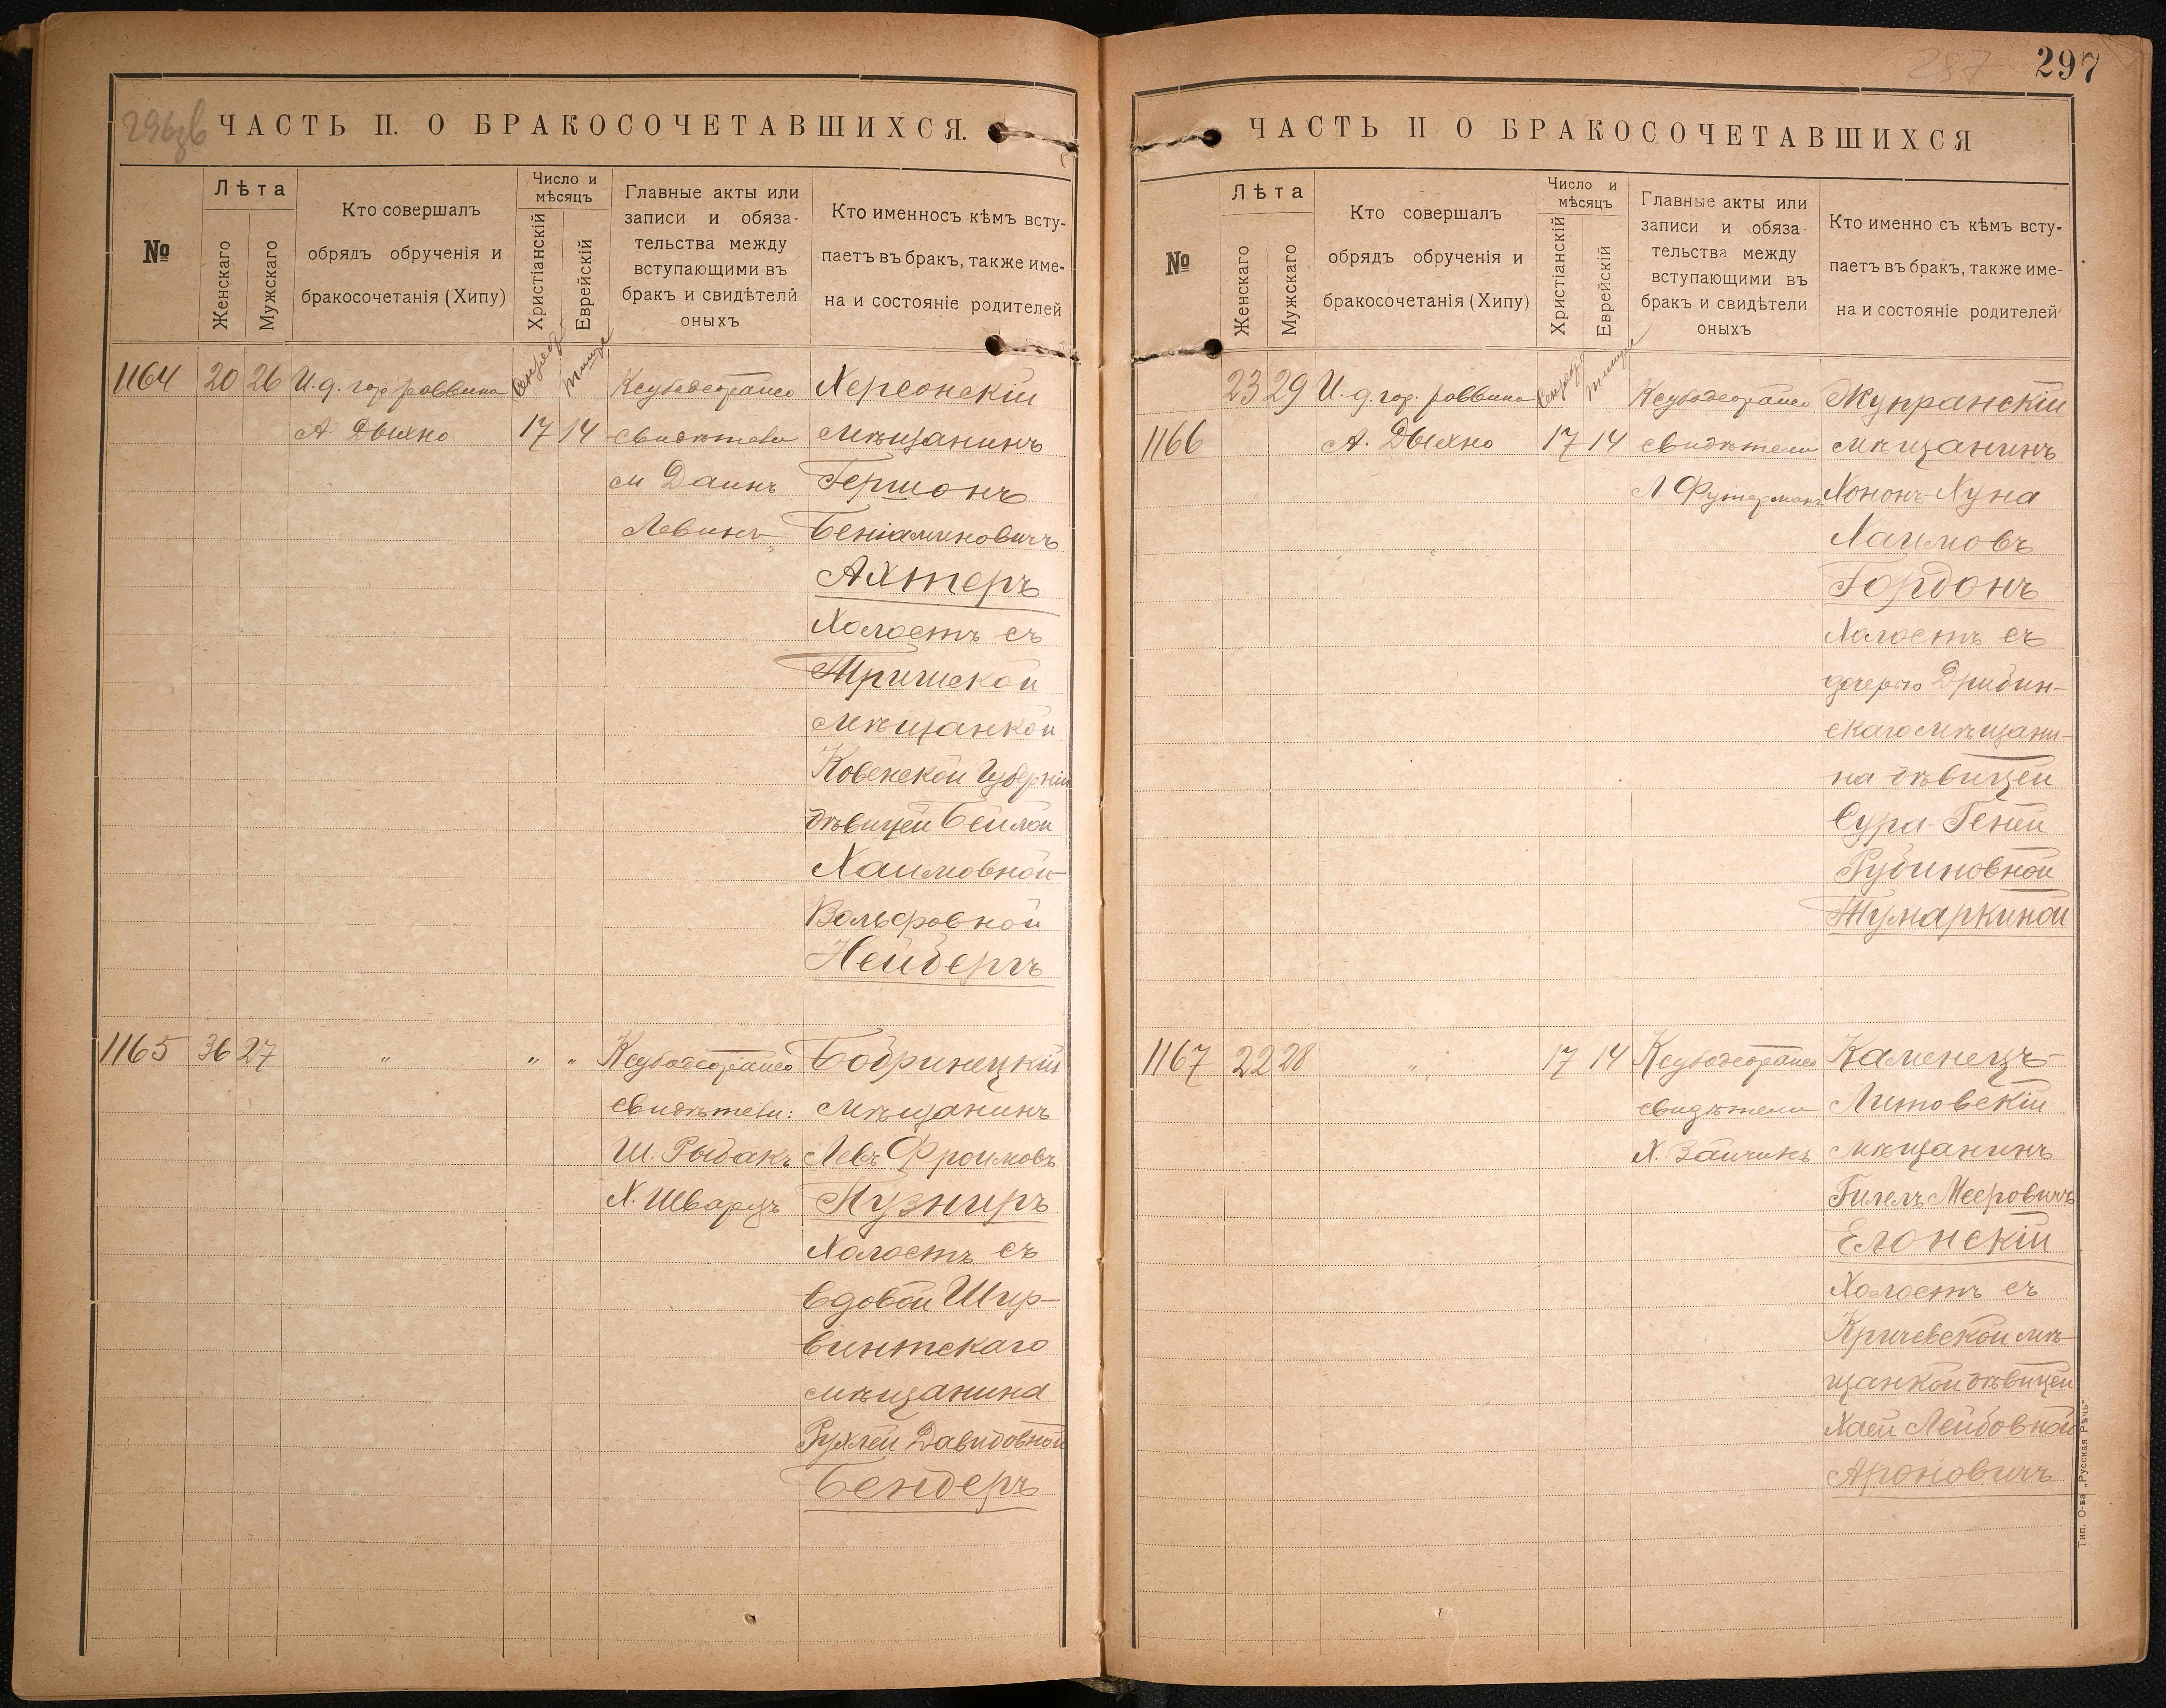 297
ЧАСТЬ II. О БРАКОСОЧЕТАВШИХСЯ.
№
Лѣта
Женскаго
Мужскаго
Кто совершалъ
обрядъ обрученія и
бракосочетанія (Хипу)
Число и
мѣсяцъ
Христіанскій
Еврейскій
Главные акты или
записи и обяза-
тельства между
вступающими въ
бракъ и свидѣтели
оныхъ
Кто именносъ кѣмъ всту-
паетъ въ бракъ, также име-
на и состояніе родителей
1164 20 26
И. д. гор. раввина
А Дыхно
17 14
свидѣтели
М Даинъ
Левинъ
Херсонскій
мѣщанинъ
Гершонъ
Беніаминовичъ
Ахтеръ
Холостъ съ
Тришской
мѣщанкой
Ковенской Губерніи
дѣвицей Бейлой
Хаимовной-
Вольфовной
Нейбергъ
1165 36 27
" " "
свидѣтели:
Ш. Рыбакъ
Х. Шварцъ
Бобринецкій
мѣщанинъ
Левъ Фроимовъ
Пузниръ
Холостъ съ
вдовой Шир-
винтскаго
мѣщанина
Рухлей Давидовной
Бендеръ
ЧАСТЬ II О БРАКОСОЧЕТАВШИХСЯ
№
Лѣта
Женскаго
Мужскаго
Кто совершалъ
обрядъ обрученія и
бракосочетанія (Хипу)
Число и
мѣсяцъ
Христіанскій
Еврейскій
Главные акты или
записи и обяза-
тельства между
вступающими въ
бракъ и свидѣтели
оныхъ
Кто именно съ кѣмъ всту-
паетъ въ бракъ, также име-
на и состояніе родителей
1166 23 29
И. д. гор. раввина
А. Дыхно
17 14
свидѣтели
Л. Футерманъ
Жупранскій
мѣщанинъ
Хононъ-Хуна
Хаимовъ
Гордонъ
Холостъ съ
дочерью Дрибин-
скаго мѣщани-
на дѣвицей
Сура-Геней
Рубиновной
Тумаркиной
1167 22 28
"
17 14
свидѣтели
Х. Зайчикъ
Каменецъ-
Литовскій
мѣщанинъ
Гилель Мееровичъ
Елонскій
Холостъ съ
Кричевской мѣ-
щанкой дѣвицей
Хаей Лейбовной
Ароновичъ
Тип. О-ва „Русская Рѣчь"